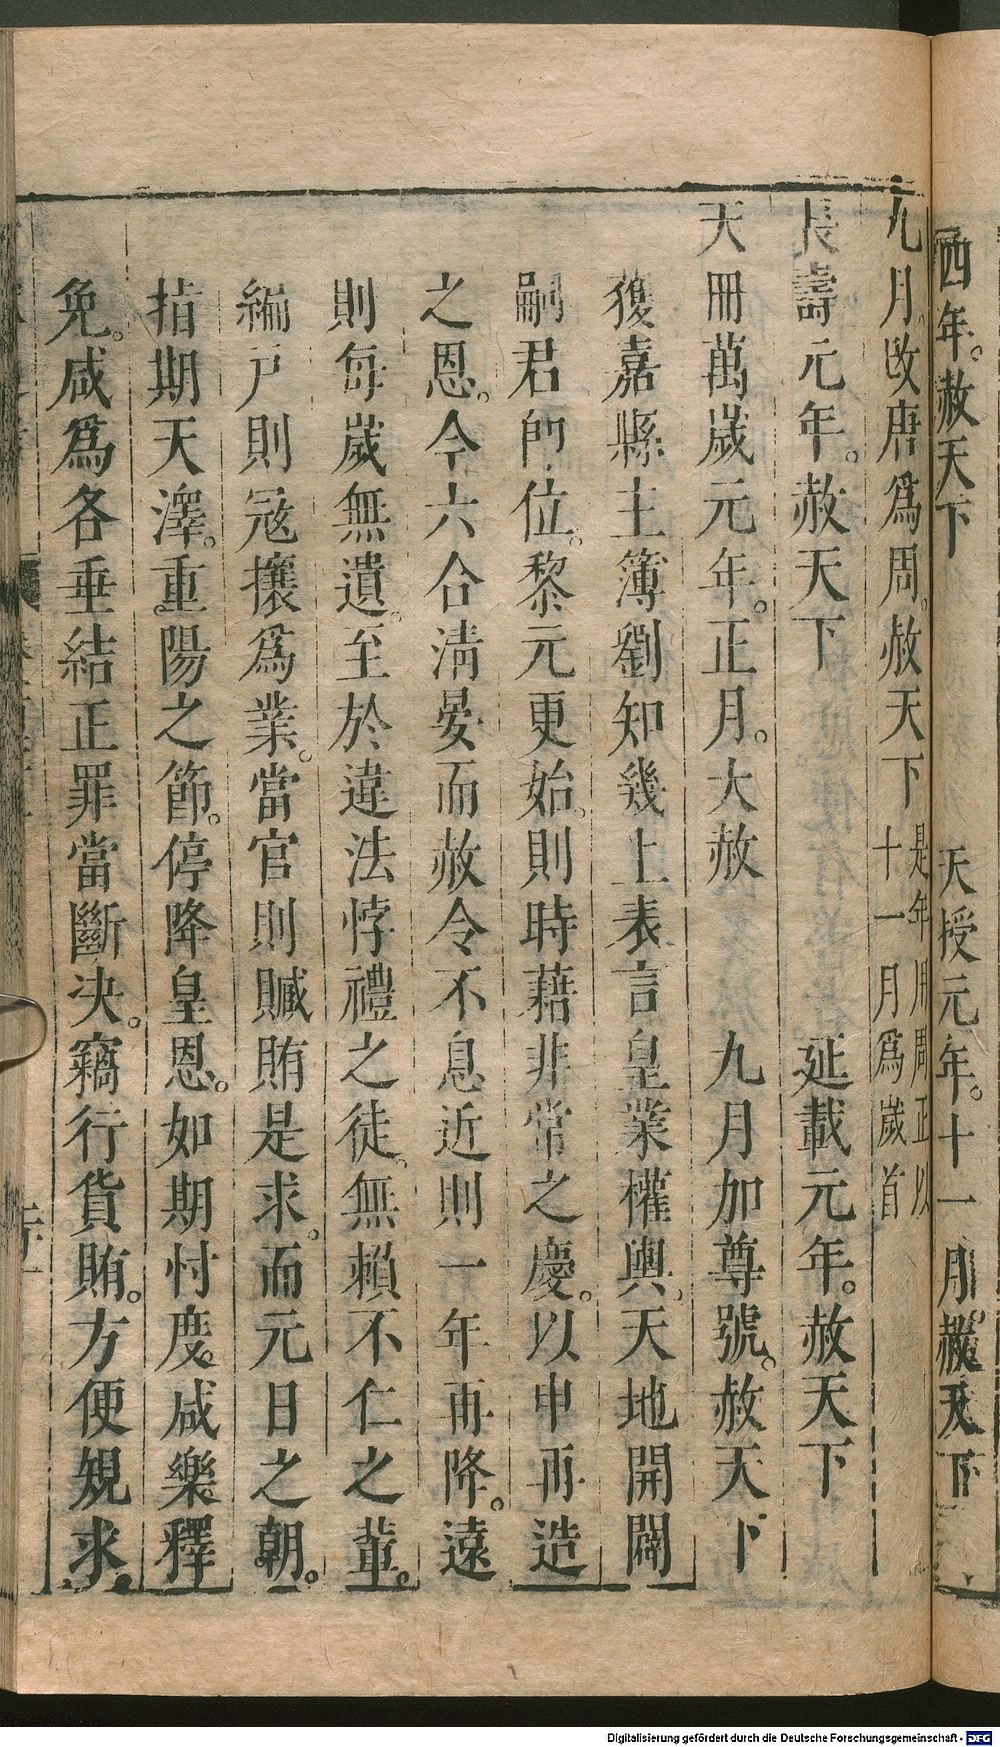 酉年。赦天下　天授元年。十一月。赦天下
九月。改唐爲周。赦天下　是年用周正以十一月爲歲首
長壽元年。赦天下　延載元年。赦天下
天冊萬歲元年。正月。大赦　九月加尊號。赦天下
獲嘉縣主簿劉知幾上表言皇業權輿。天地開闢
嗣君卽位。黎元更始。則時藉非常之慶。以申再造
之恩。今六合清晏而赦令不息近則一年再降。遠
則每歲無遺。至於違法悖禮之徒。無賴不仁之輩。
編戸則寇攘爲業。當官則贓賄是求。而元日之朝。
指期天澤。重陽之節。停降皇恩。如期忖度。咸樂釋
免。咸爲各垂結正罪當斷決。竊行貨賄。方便規求。
Digitalisierung gefördert durch die Deutsche Forschungsgemeinschaft - DFG